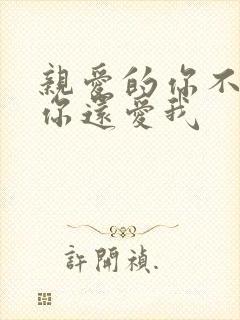 親愛的你不
你還愛我
許開禎.